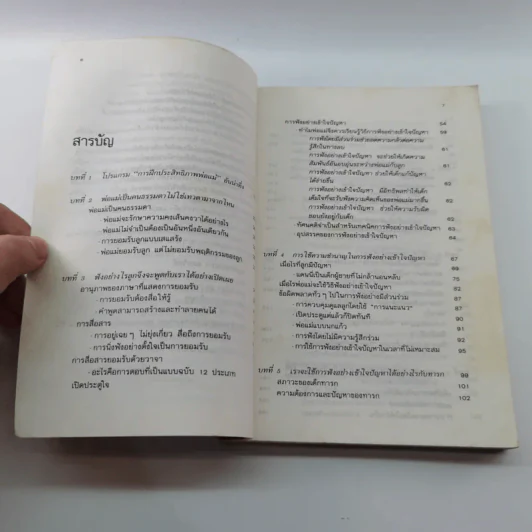 สารบัญ
บทที่ 1 โปรแกรม "การฝึกประสิทธิภาพพ่อแม่" อันน่าทึ่ง
บทที่ 2 พ่อแม่เป็นคนธรรมดาไม่ใช่เทวดามาจากไหน
พ่อแม่เป็นคนธรรมดา
พ่อแม่จะรักษาความคงเส้นคงวาได้อย่างไร
พ่อแม่ไม่จำเป็นต้องเป็นอันหนึ่งอันเดียวกัน
การยอมรับลูกแบบเสแสร้ง
พ่อแม่ยอมรับลูก แต่ไม่ยอมรับพฤติกรรมของลูก
บทที่ 3 ฟังอย่างไรลูกจึงจะพูดกับเราได้อย่างเปิดเผย
อานุภาพของภาษาที่แสดงการยอมรับ
การยอมรับต้องสื่อให้รู้
คำพูดสามารถสร้างและทำลายคนได้
การสื่อสาร
- การอยู่เฉย ๆ ไม่ยุ่งเกี่ยว สื่อถึงการยอมรับ
- การนิ่งฟังอย่างตั้งใจเป็นการยอมรับ
การสื่อสารยอมรับด้วยวาจา
- อะไรคือการตอบที่เป็นแบบฉบับ 12 ประเภท
เปิดประตูใจ
การฟังอย่างเข้าใจปัญหา 54
ทำไมพ่อแม่จึงควรเรียนรู้วิธีการฟังอย่างเข้าใจปัญหา 59
รู้สึกในทางลบ
การฟังอย่างเข้าใจปัญหา จะช่วยให้เกิดความ
สัมพันธ์อันอบอุ่นระหว่างพ่อแม่กับลูก 61
การฟังอย่างเข้าใจปัญหา ช่วยให้เด็กแก้ปัญหา
ได้ง่ายขึ้น
การฟังอย่างเข้าใจปัญหา มีอิทธิพลทำให้เด็ก
เต็มใจที่จะรับฟังความคิดเห็นของพ่อแม่มากขึ้น
การฟังอย่างเข้าใจปัญหา ช่วยให้ความรับผิด
ชอบยังอยู่กับเด็ก
ทัศนคติที่จำเป็นสำหรับเทคนิคการฟังอย่างเข้าใจปัญหา
อุปสรรคของการฟังอย่างเข้าใจปัญหา
บทที่ 4 การใช้ความชำนาญในการฟังอย่างเข้าใจปัญหา 67
เมื่อไรที่ลูกมีปัญหา
- แดนนีเป็นเด็กผู้ชายที่ไม่กล้านอนหลับ
เมื่อไรพ่อแม่จะใช้วิธีฟังอย่างเข้าใจปัญหา
ข้อผิดพลาดทั่ว ๆ ไปในการฟังอย่างมีส่วนร่วม
- การควบคุมดูแลลูกโดยใช้ "การแนะแนว"
- เปิดประตูแต่แล้วก็ปิดทันที
- พ่อแม่แบบนกแก้ว
- การฟังโดยไม่มีความรู้สึกร่วม
- การใช้การฟังอย่างเข้าใจปัญหาในเวลาที่ไม่เหมาะสม 95
บทที่ 5 เราจะใช้การฟังอย่างเข้าใจปัญหาได้อย่างไรกับทารก 99
สภาวะของเด็กทารก 101
ความต้องการและปัญหาของทารก 102